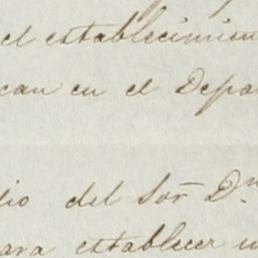 el establecimien
can en el Depa
dio del Sor Dn
ara establecer u